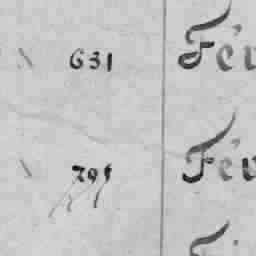 631 Fév
795 Fév